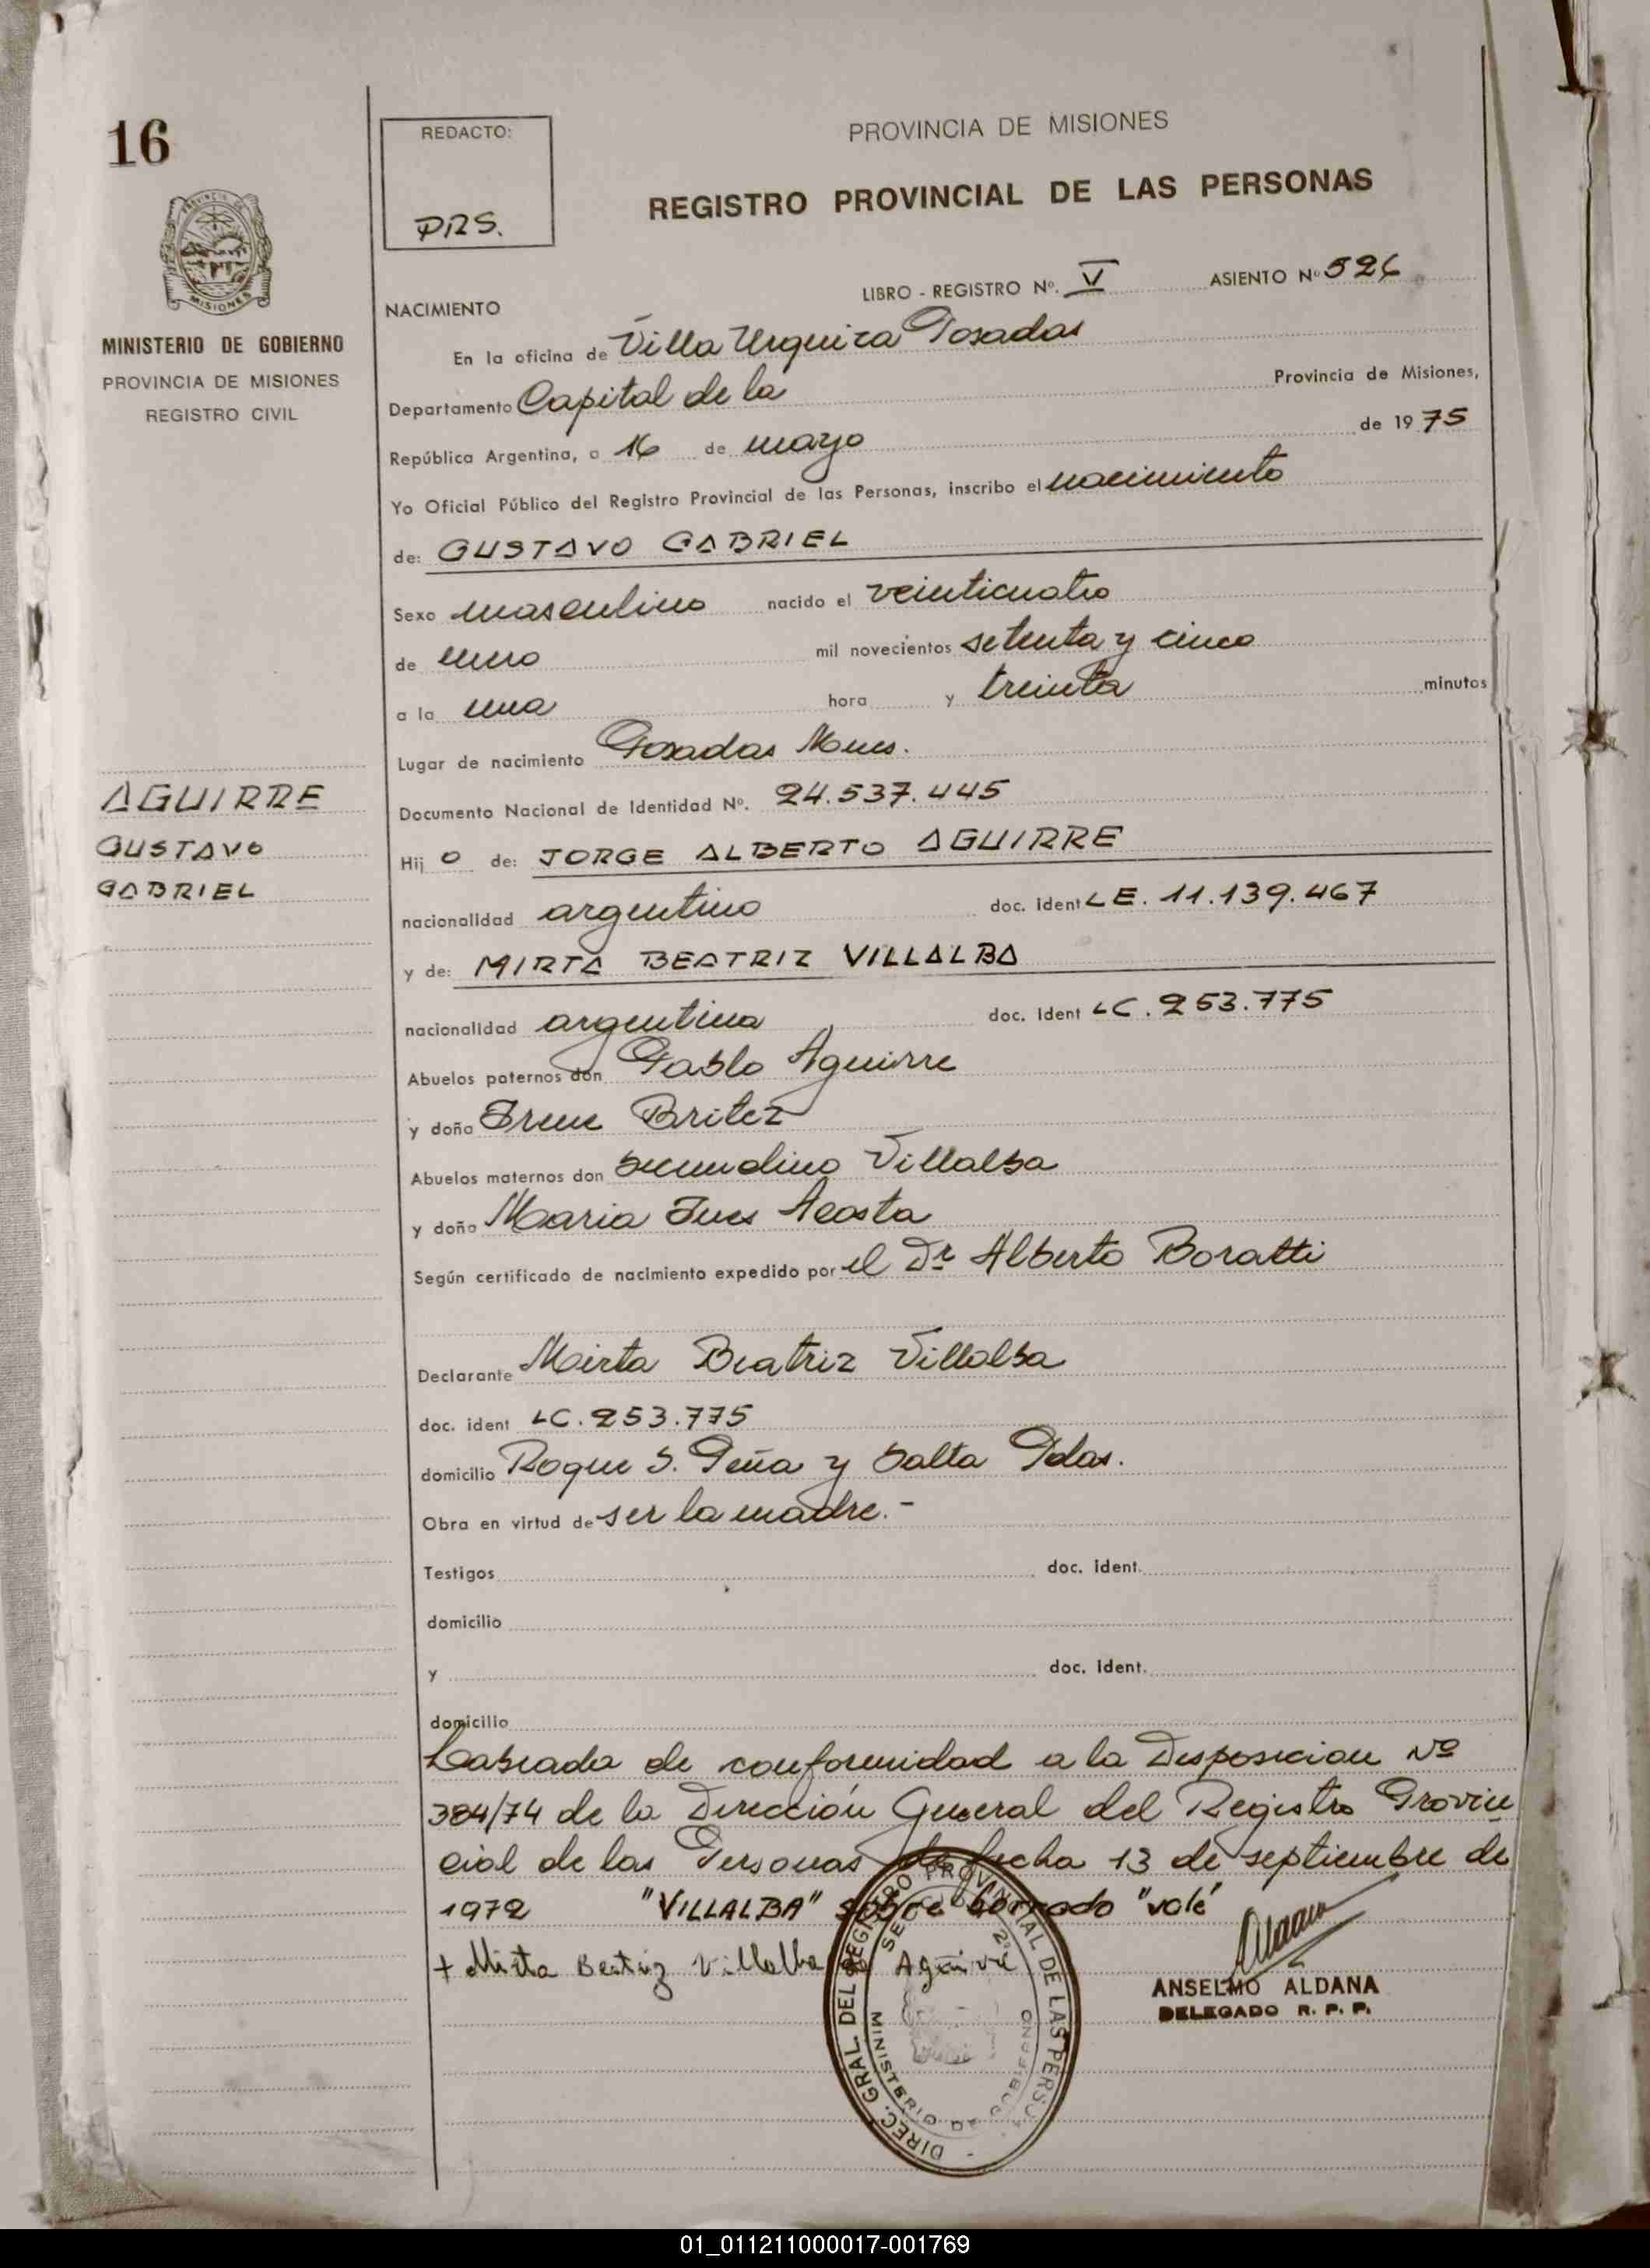 16
REDACTO:
PRS.
PROVINCIA DE MISIONES
REGISTRO PROVINCIAL DE LAS PERSONAS
MISIONES
MINISTERIO DE GOBIERNO
PROVINCIA DE MISIONES
REGISTRO CIVIL
LIBRO - REGISTRO Nº. V ASIENTO Nº 526
NACIMIENTO
En la oficina de Villa Urquiza Posadas
Departamento Capital de la Provincia de Misiones,
República Argentina, a 16 de mayo de 1975
Yo Oficial Público del Registro Provincial de las Personas, inscribo el nacimiento
de: GUSTAVO GABRIEL
Sexo masculino nacido el veinticuatro
de enero mil novecientos setenta y cinco
a la una hora y treinta minutos
Lugar de nacimiento Posadas Mnes.
AGUIRRE
GUSTAVO
GABRIEL
Documento Nacional de Identidad Nº. 24.537.445
Hij o de: JORGE ALBERTO AGUIRRE
nacionalidad argentino doc. ident LE. 11.139.467
y de: MIRTA BEATRIZ VILLALBA
nacionalidad argentina doc. ident LC. 253.775
Abuelos paternos don Pablo Aguirre
y doña Irene Britez
Abuelos maternos don Secundino Villalba
y doña Maria Ines Acosta
Según certificado de nacimiento expedido por el Dr Alberto Boratti
Declarante Mirta Beatriz Villalba
doc. ident LC. 253.775
domicilio Roque S. Peña y Salta Pdas.
Obra en virtud de ser la madre.-
Testigos doc. ident.
domicilio
y doc. ident.
domicilio
Labrada de conformidad a la Disposicion Nº
384/74 de la Dirección General del Registro Provin
cial de las Personas de fecha 13 de septiembre de
1972 "VILLALBA" sobre borrado "vale"
+ Mirta Beatriz Villalba de Aguirre
ANSELMO ALDANA
DELEGADO R. P. P.
DIREC. GRAL. DEL REGISTRO PROVINCIAL DE LAS PERSO.
MINISTERIO DE GOBIERNO
01_011211000017-001769